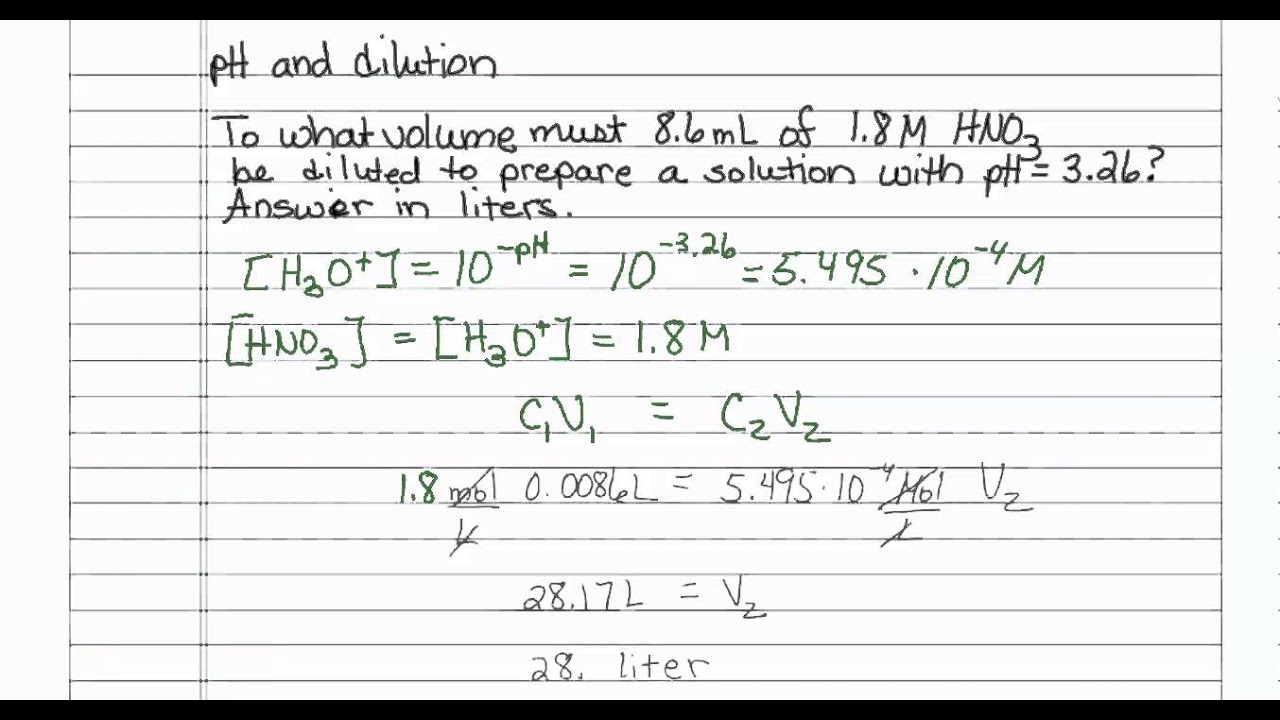 pH and dilution
To what volume must 8.6mL of 1.8M HNO₃
be diluted to prepare a solution with pH = 3.26?
Answer in liters.
[H₃O⁺] = 10⁻ᵖᴴ = 10⁻³·²⁶ = 5.495 · 10⁻⁴ M
[HNO₃] = [H₃O⁺] = 1.8 M
C₁V₁ = C₂V₂
1.8 mol/L 0.0086L = 5.495 · 10⁻⁴ Mol/L V₂
28.17L = V₂
28. liter